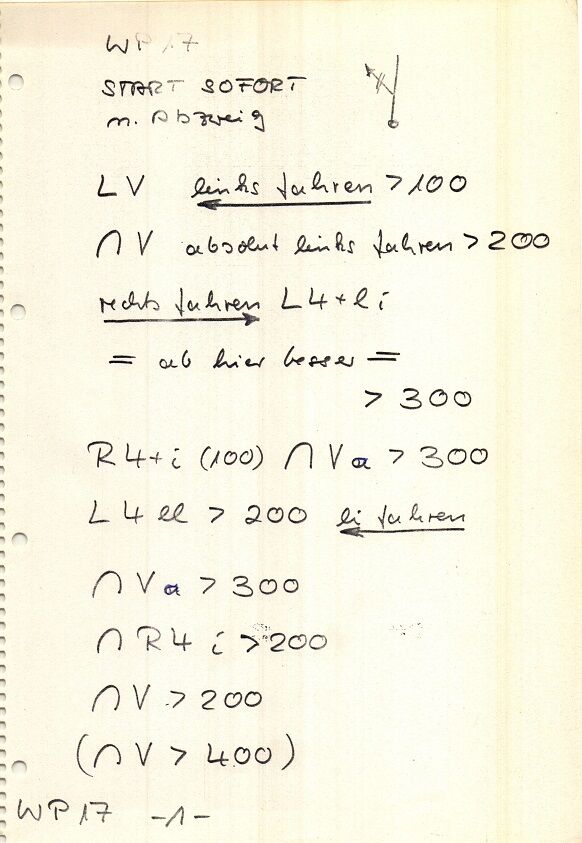 WP 17
START SOFORT
n. Abzweig
LV links fahren > 100
∩ V absolut links fahren > 200
rechts fahren L4+l i
= ab hier besser =
> 300
R4+i (100) ∩ Va > 300
L4 ll > 200 li fahren
∩ Va > 300
∩ R4 i > 200
∩ V > 200
(∩ V > 400)
WP 17 -1-